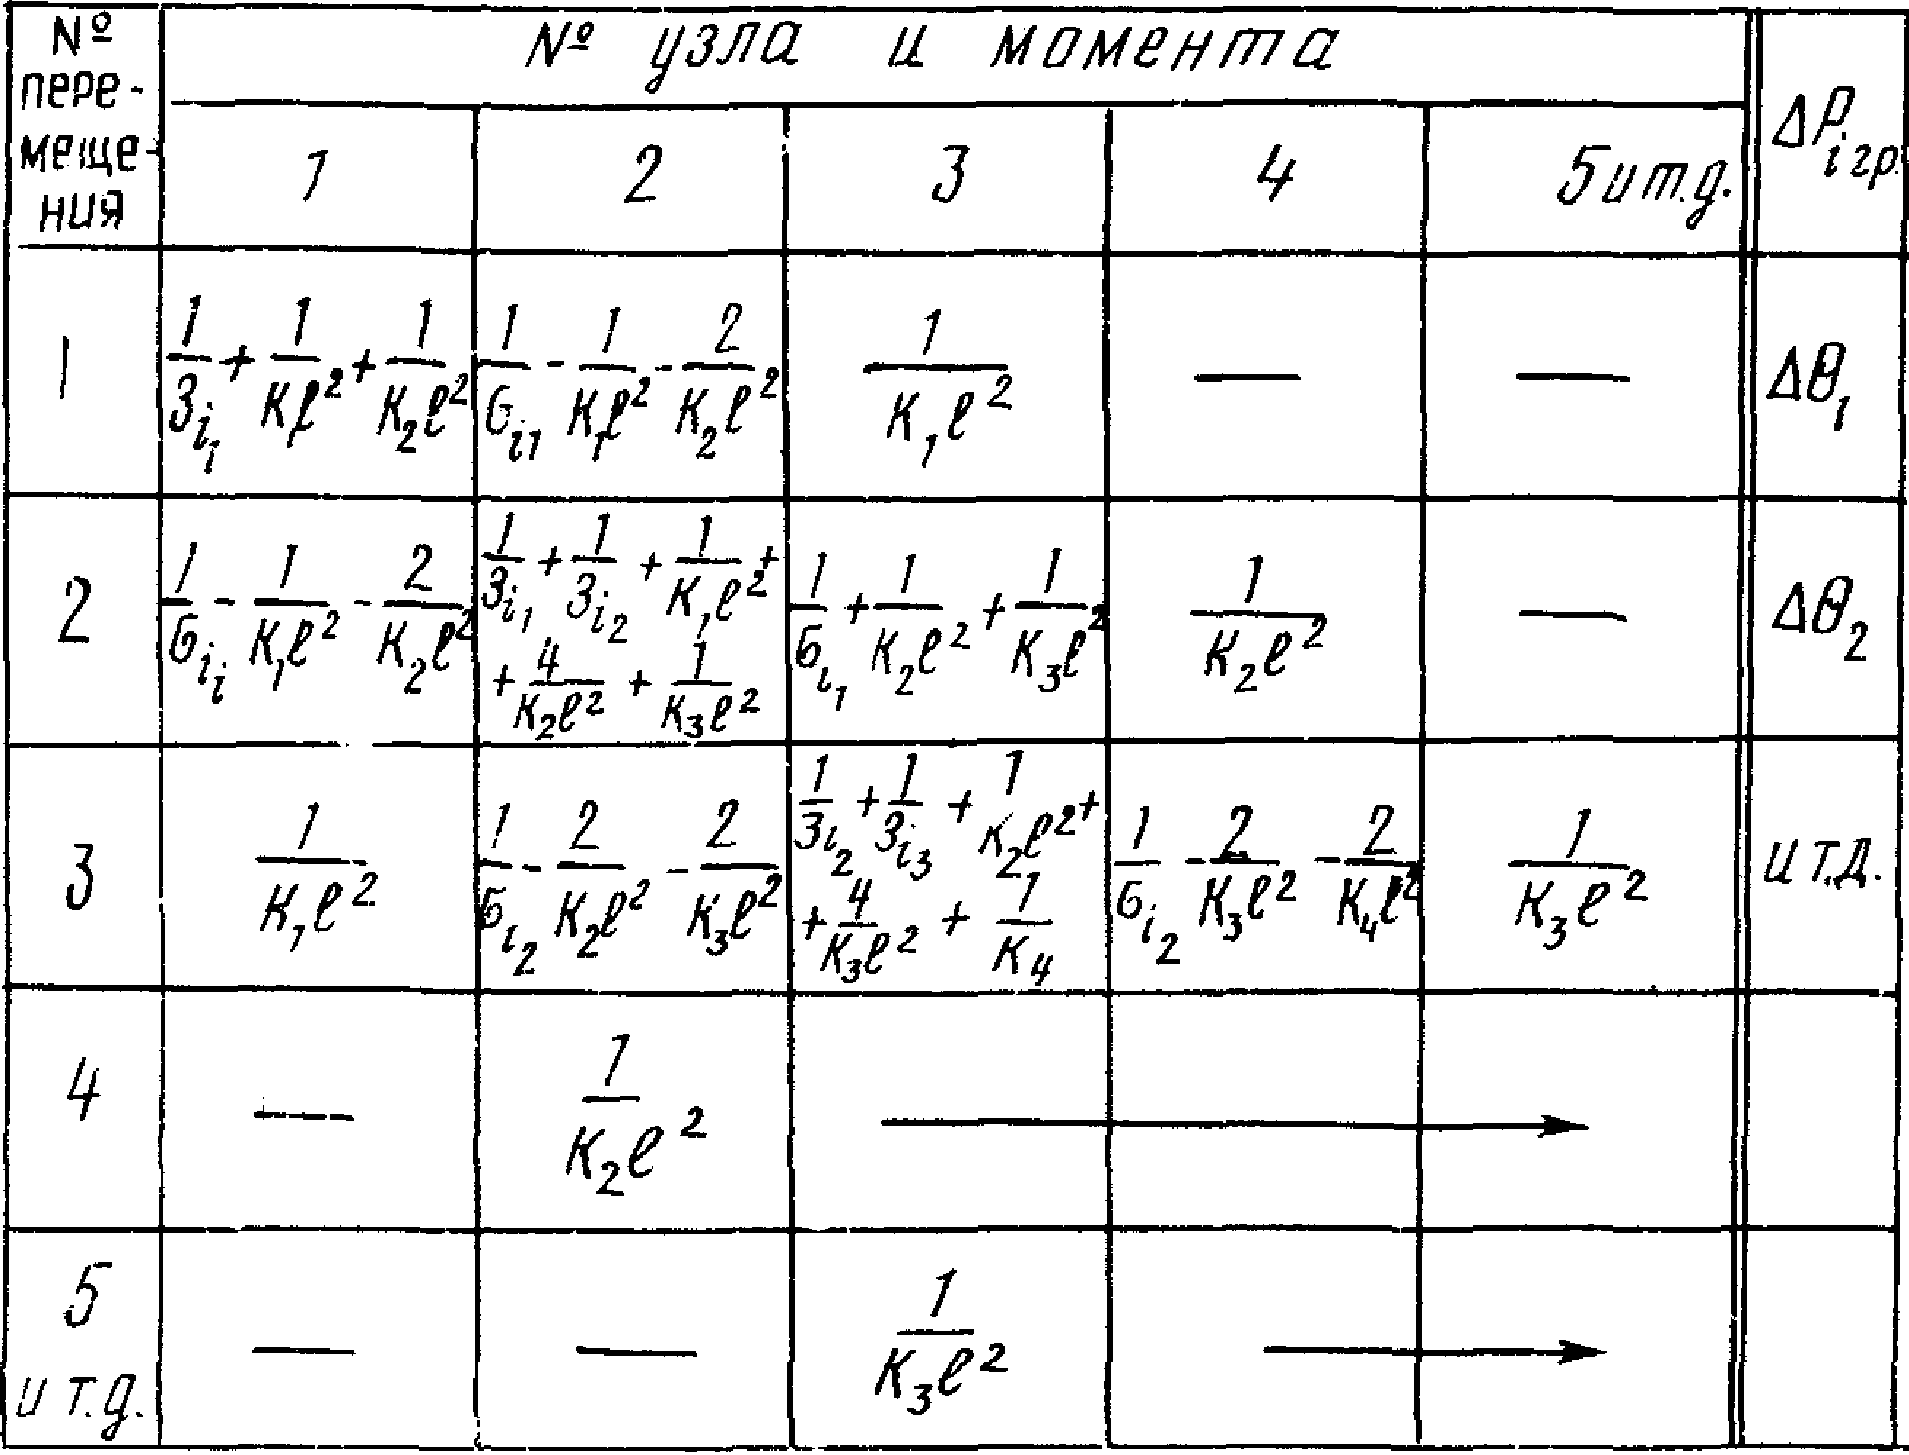 № пере-меще-ния | № узла и момента | ΔP_{i гр.}
1 | 2 | 3 | 4 | 5 и т.д.
1 | 1/3i_1 + 1/Kl² + 1/K_2l² | 1/6i1 - 1/K_1l² - 2/K_2l² | 1/K_1l² | — | — | Δθ_1
2 | 1/6i_i - 1/K_1l² - 2/K_2l² | 1/3i_1 + 1/3i_2 + 1/K_1l² + + 4/K_2l² + 1/K_3l² | 1/6i_1 + 1/K_2l² + 1/K_3l² | 1/K_2l² | — | Δθ_2
3 | 1/K_1l² | 1/6i_2 - 2/K_2l² - 2/K_3l² | 1/3i_2 + 1/3i_3 + 1/K_2l² + + 4/K_3l² + 1/K_4 | 1/6i_2 - 2/K_3l² - 2/K_4l² | 1/K_3l² | и т.д.
4 | — | 1/K_2l² | →
5 и т.д. | — | — | 1/K_3l² | →